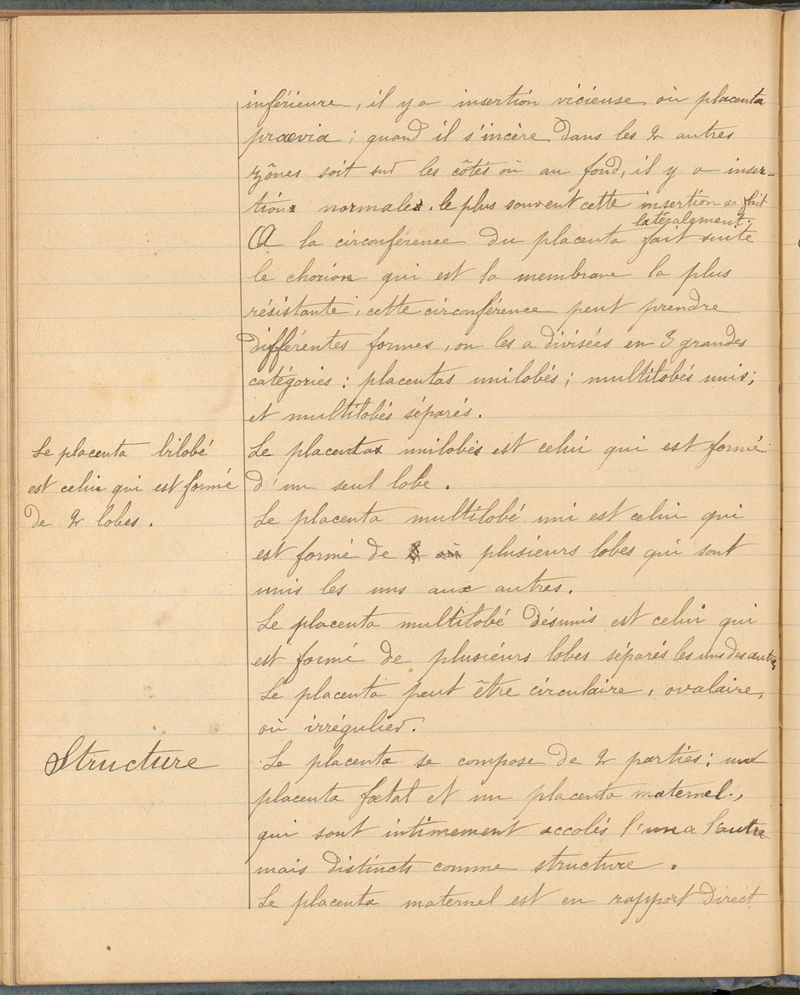 inférieure, il y a insertion vicieuse où placenta
prœvia ; quand il s'incère dans les 2 autres
zônes soit sur les côtés où au fond, il y a inser-
tion normale. le plus souvent cette insertion se fait
latéralement.
A la circonférence du placenta fait suite
le chorion qui est la membrane la plus
résistante ; cette circonférence peut prendre
différentes formes, on les a divisées en 3 grandes
catégories : placentas unilobés ; multilobés unis ;
et multilobés séparés.
Le placenta bilobé
est celui qui est formé
de 2 lobes.
Le placenta unilobé est celui qui est formé
d'un seul lobe.
Le placenta multilobé uni est celui qui
est formé de plusieurs lobes qui sont
unis les uns aux autres.
Le placenta multilobé désunis est celui qui
est formé de plusieurs lobes séparés les uns des autres
Le placenta peut être circulaire, ovalaire,
où irrégulier.
Structure
Le placenta se compose de 2 parties ; un
placenta fœtal et un placenta maternel.,
qui sont intimement accolés l'un a l'autre
mais distincts comme structure.
Le placenta maternel est en rapport direct